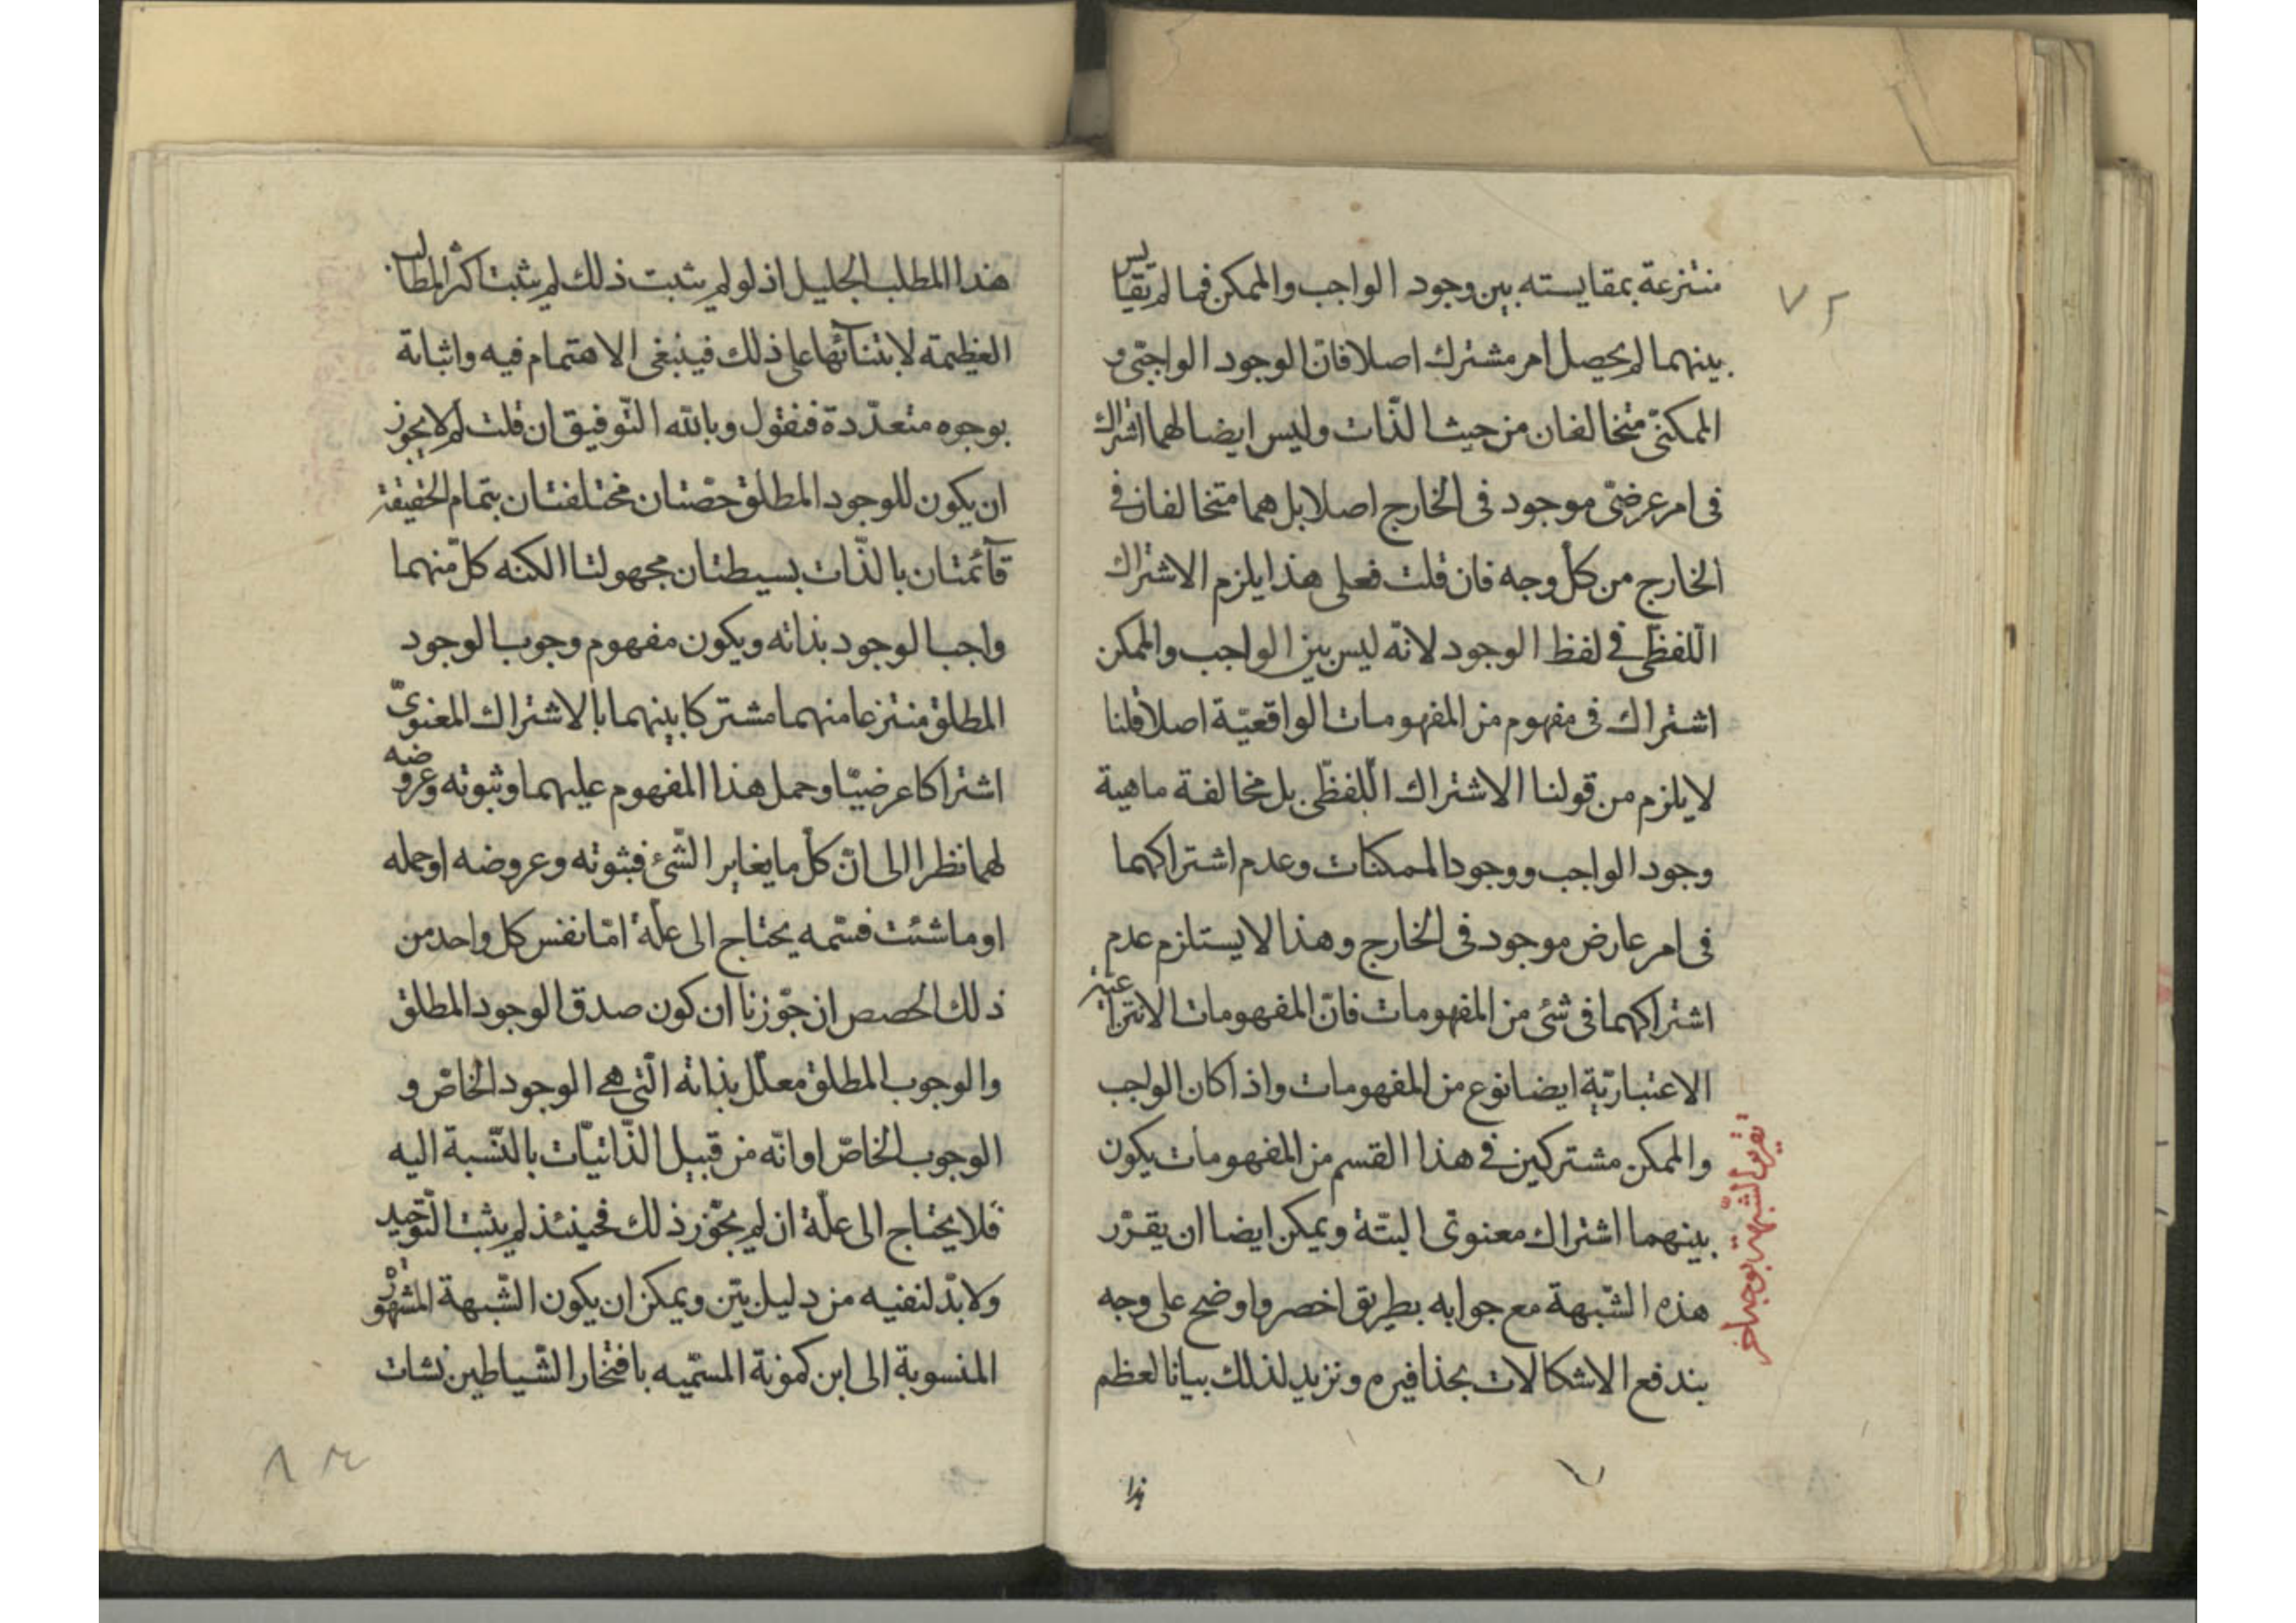 منتزعة بمقايسته بين وجود الواجب والممكن فما لم يقايس
بينهما لم يحصل امر مشترك اصلا فانّ الوجود الواجبّى و
الممكنىّ متخالفان من حيث الذّات وليس ايضا لهما اشتراك
فى امر عرضىّ موجود فى الخارج اصلا بل هما متخالفان فى
الخارج من كلّ وجه فان قلت فعلى هذا يلزم الاشتراك
اللّفظّى فى لفظ الوجود لانّه ليس بين الواجب والممكن
اشتراك فى مفهوم من المفهومات الواقعيّة اصلا قلنا
لا يلزم من قولنا الاشتراك اللّفظّى بل مخالفة ماهية
وجود الواجب ووجود الممكنات وعدم اشتراكهما
فى امر عارض موجود فى الخارج وهذا لا يستلزم عدم
اشتراكهما فى شئ من المفهومات فانّ المفهومات الانتزاعيّة
الاعتباريّة ايضا نوع من المفهومات واذا كان الواجب
والممكن مشتركين فى هذا القسم من المفهومات يكون
بينهما اشتراك معنوى البتّة ويمكن ايضا ان يقرّر
هذه الشّبهة مع جوابه بطريق اخصر واوضح على وجه
يندفع الاشكالات بحذافيره ونزيد لذلك بيانا لعظم
هذا
تقرير الشّبهة بوجه اخر
٧٢
هذا المطلب الجليل اذ لو لم يثبت ذلك لم يثبت اكثر المطالب
العظيمة لابتنائها على ذلك فينبغى الاهتمام فيه واثباته
بوجوه متعدّدة فنقول وبالله التّوفيق ان قلت لم لا يجوز
ان يكون للوجود المطلق حصّتان مختلفتان بتمام الحقيقة
قآئمتان بالذّات بسيطتان مجهولتا الكنه كلّ منهما
واجب الوجود بذاته ويكون مفهوم وجوب الوجود
المطلق منتزعا منهما مشتركا بينهما بالاشتراك المعنوىّ
اشتراكا عرضيّا وحمل هذا المفهوم عليهما وثبوته وعروضه
لهما نظرا الى انّ كلّ ما يغاير الشّئ فثبوته وعروضه او حمله
او ما شئت فسّمه يحتاج الى علّة امّا نفس كل واحد من
ذلك الحصص ان جوّزنا ان كون صدق الوجود المطلق
والوجوب المطلق معلّل بذاته الّتى هى الوجود الخاصّ و
الوجوب الخاصّ او انّه من قبيل الذّاتيّات بالنّسبة اليه
فلا يحتاج الى علّة ان لم يجوّز ذلك فحينئذ لم يثبت التّوحيد
ولابدّ لنفيه من دليل بيّن ويمكن ان يكون الشّبهة المشهورة
المنسوبة الى ابن كمونة المسمّيه بافتخار الشّياطين نشات